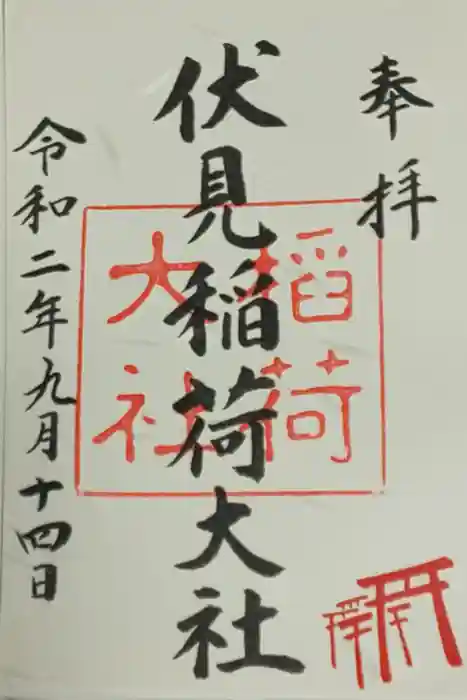 奉拝
伏見稲荷大社
稲荷
大社
令和二年九月十四日